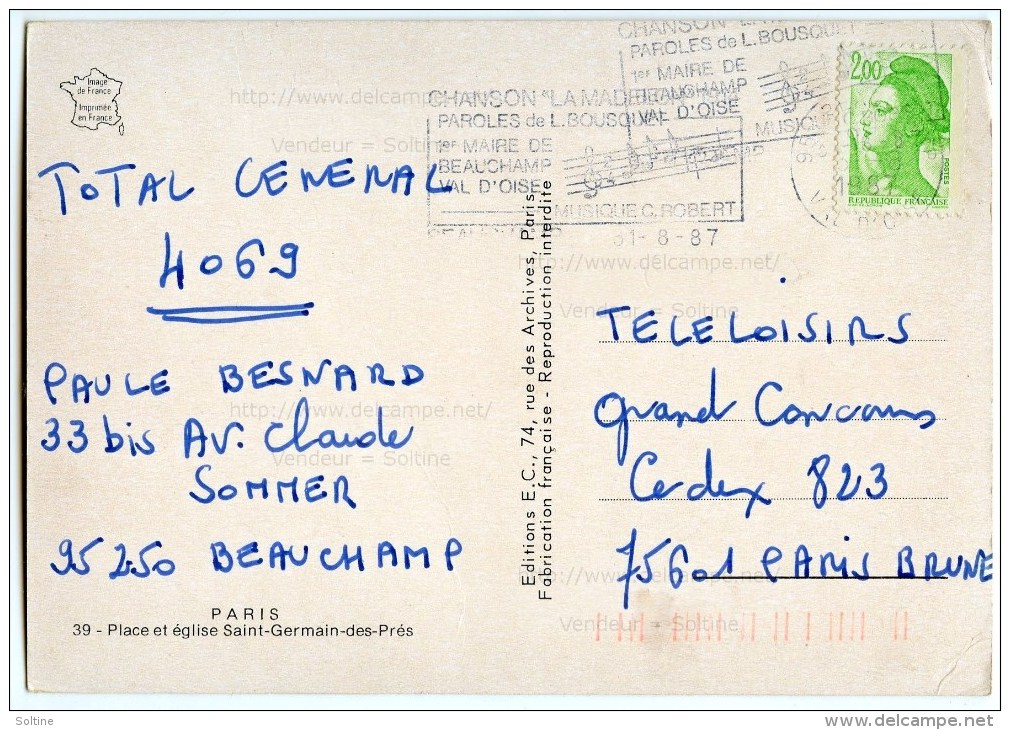 Image
de France
Imprimée
en France
CHANSON "LA MADE
PAROLES de L. BOUSQUET
1er MAIRE DE
BEAUCHAMP
VAL D'OISE
MUSIQUE
CHANSON "LA MADE
PAROLES de L. BOUSQUET
1er MAIRE DE
BEAUCHAMP
VAL D'OISE
MUSIQUE C. ROBERT
31-8-87
2,00
POSTES
REPUBLIQUE FRANÇAISE
TOTAL GENERAL
4069
PAULE BESNARD
33 bis Av. Claude
SOMMER
95250 BEAUCHAMP
PARIS
39 - Place et église Saint-Germain-des-Prés
Editions E.C., 74, rue des Archives, Paris
Fabrication française - Reproduction interdite
TELELOISIRS
grand Concours
Cedex 823
75601 PARIS BRUNE
http://www.delcampe.net/
Vendeur = Soltine
http://www.delcampe.net/
Vendeur = Soltine
http://www.delcampe.net/
Vendeur = Soltine
http://www.delcampe.net/
Vendeur = Soltine
Soltine
www.delcampe.net